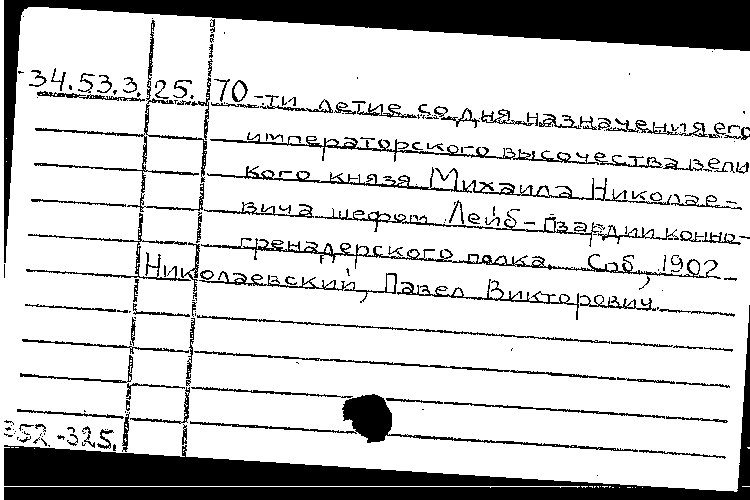 34.53.3. 25. 70-ти летие со дня назначения его
императорского высочества вели
кого князя Михаила Николае-
вича шефом Лейб-гвардии конно-
гренадерского полка. Спб, 1902
Николаевский, Павел Викторович.
352-325.